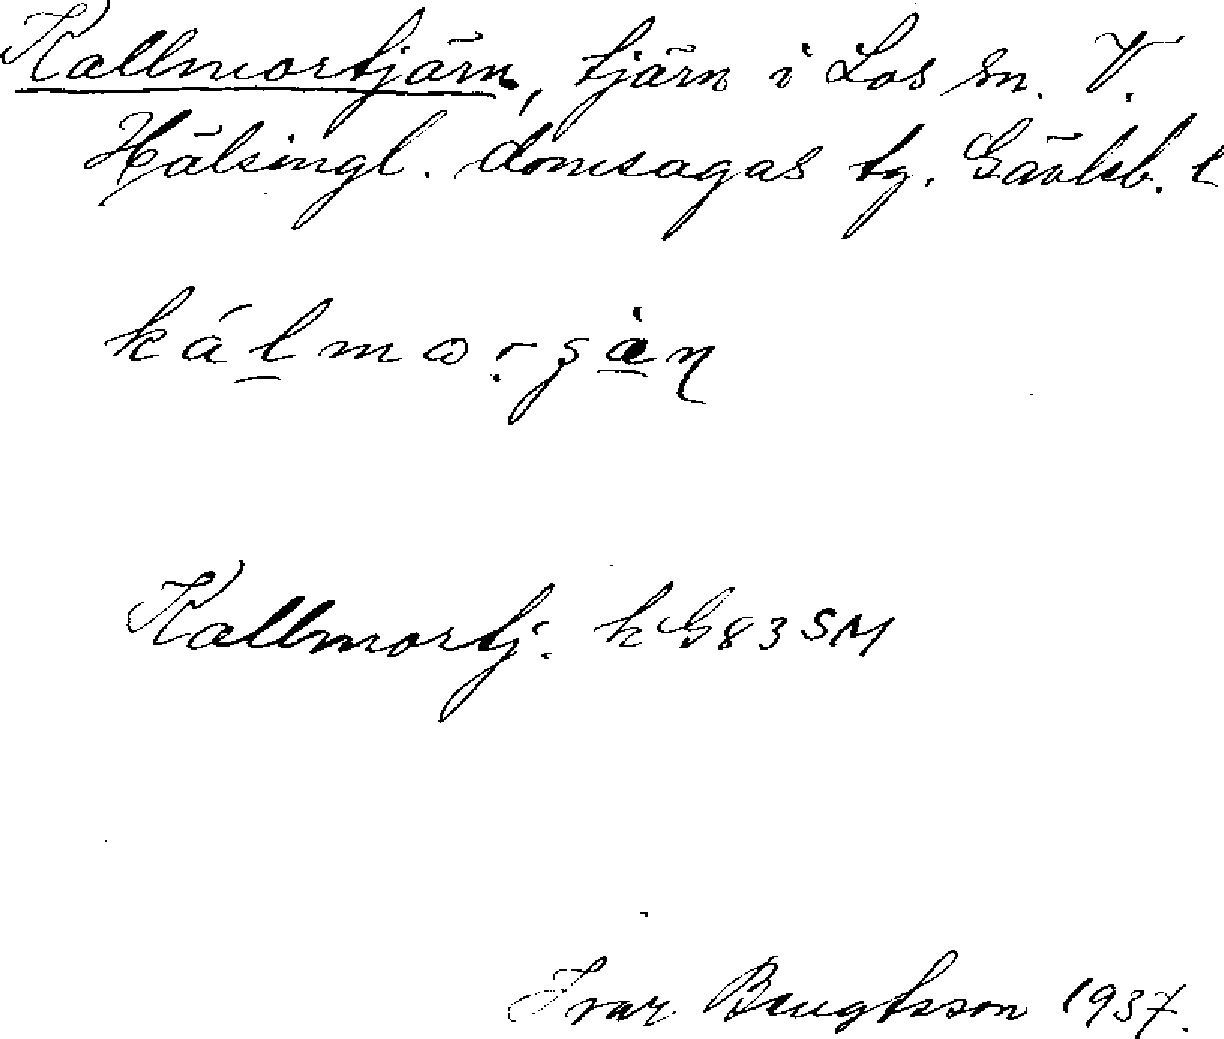 Kallmortjärn, tjärn i Los sn. V.
Hälsingl. domsagas tg. Gävleb. l
Kallmortj. k G83SM
Ivar Bengtsson 1937.